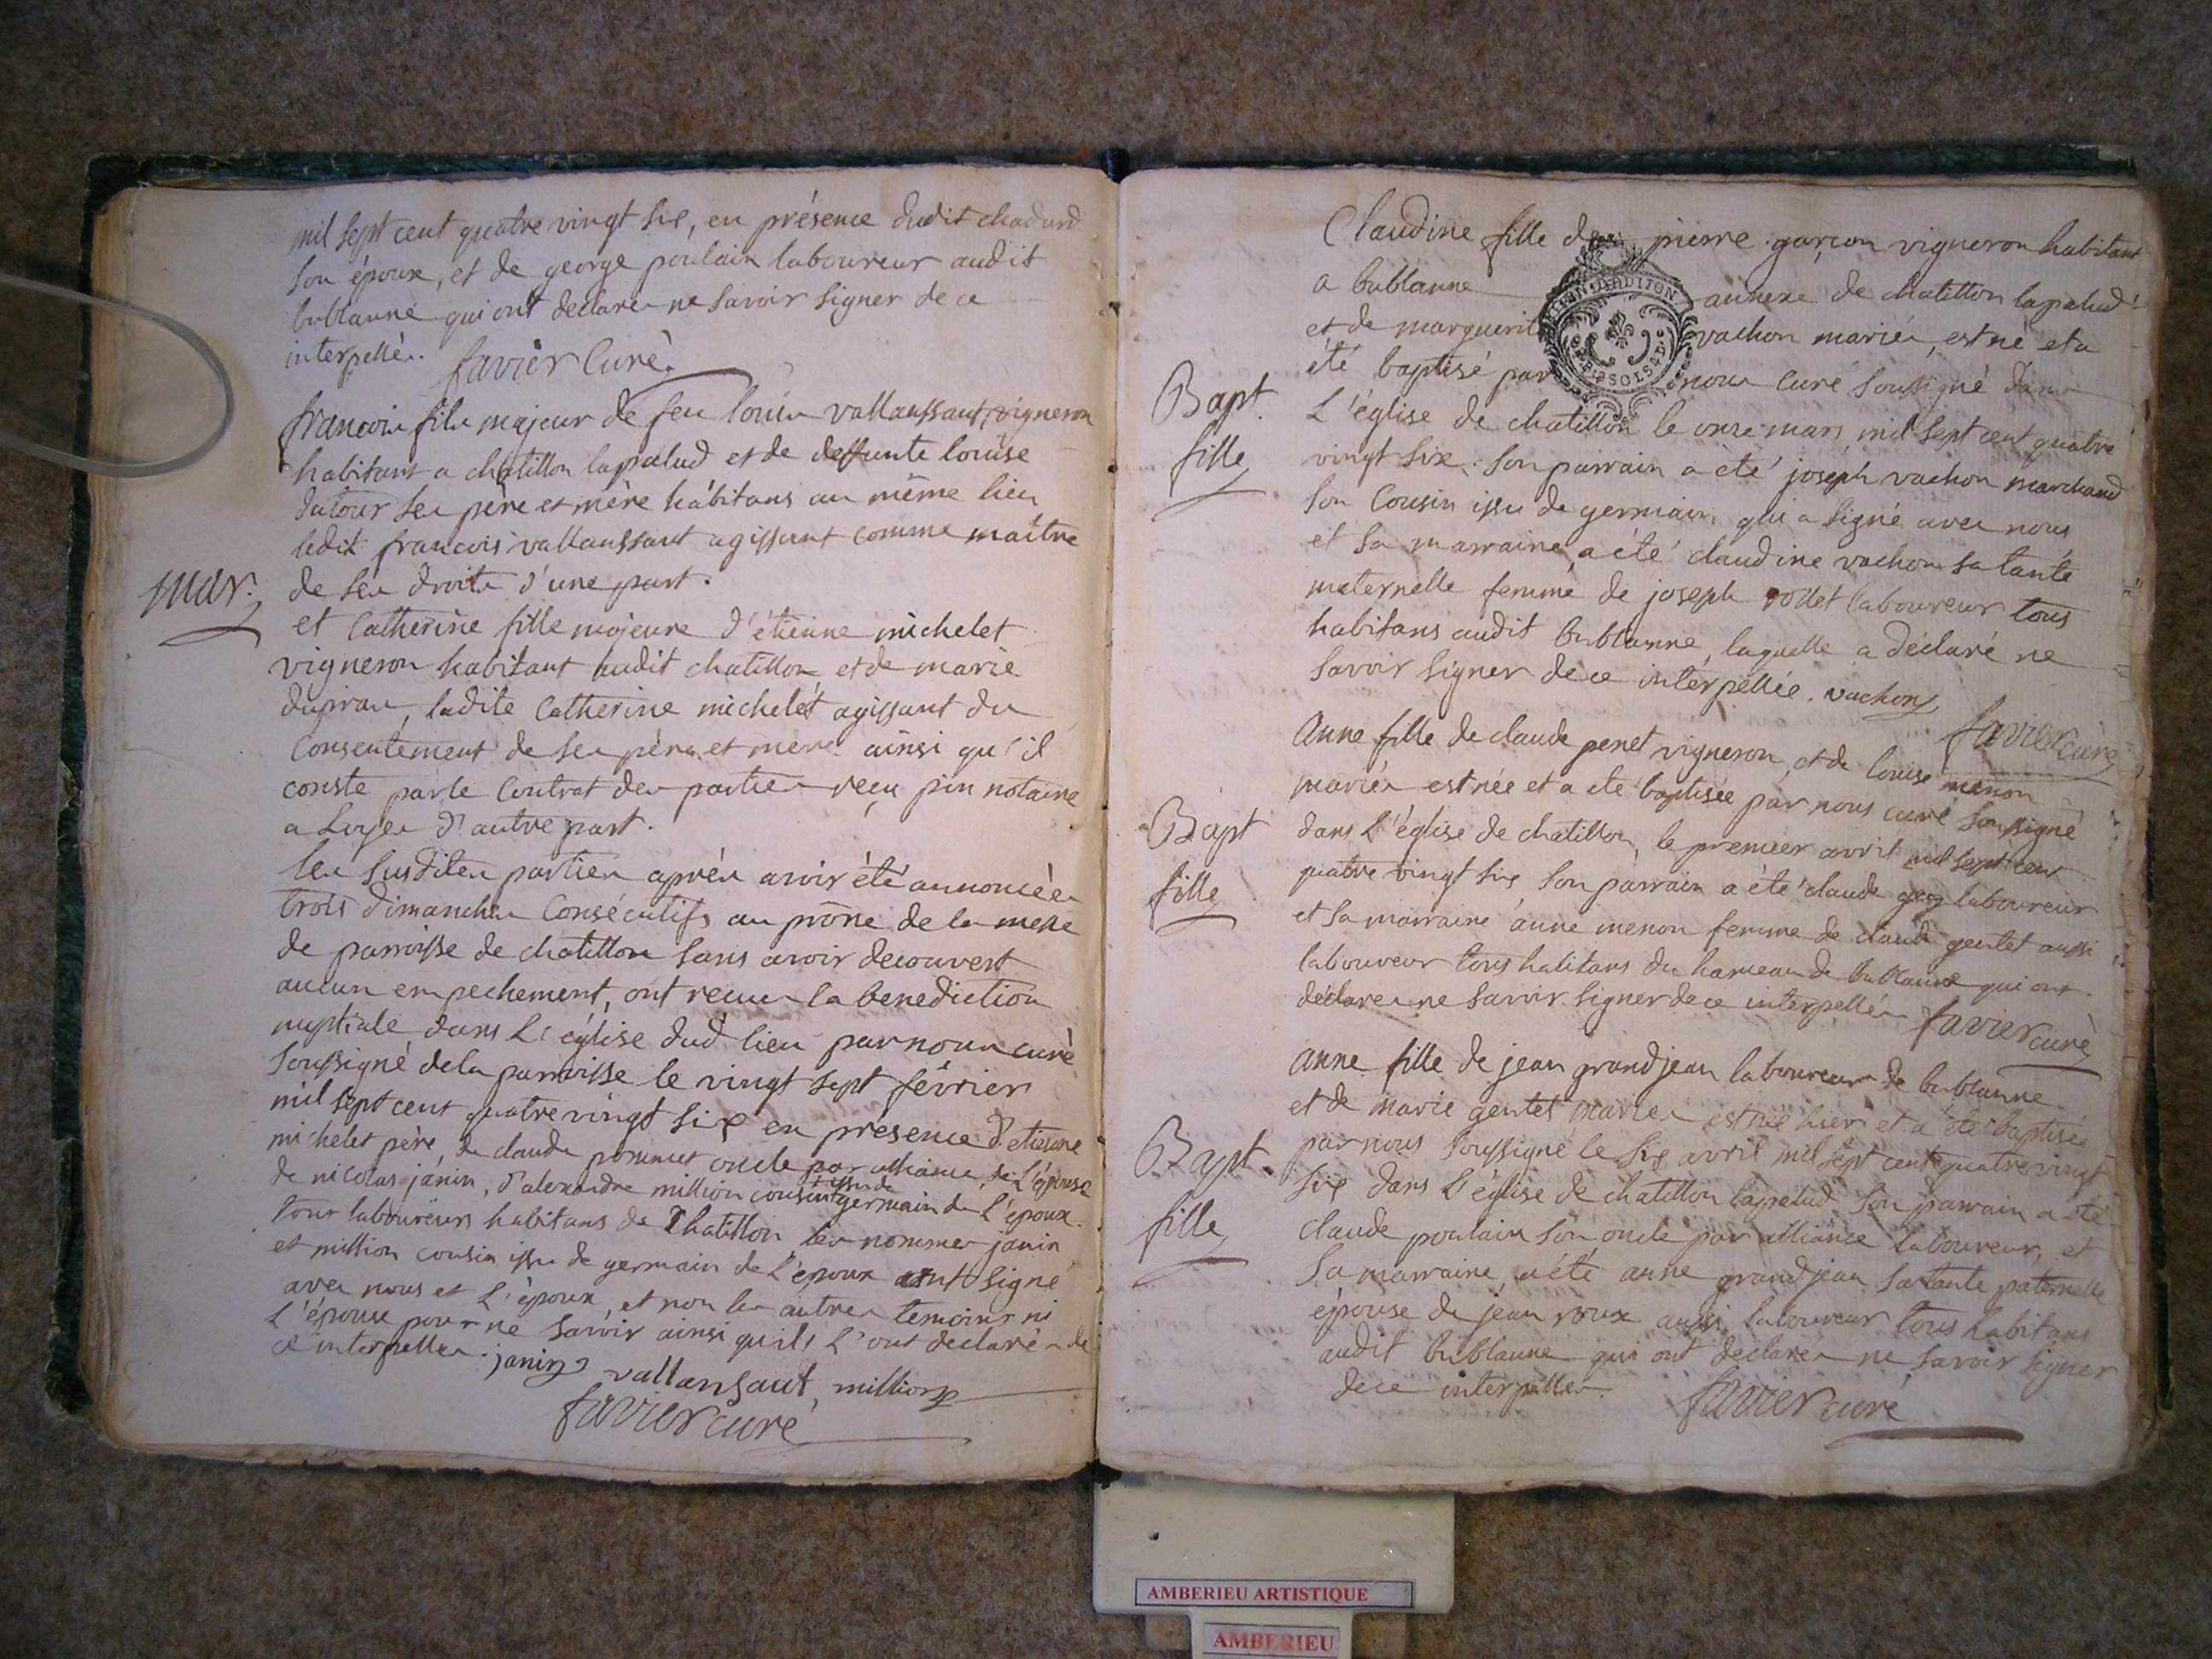 mil sept cent quatre vingt six, en présence dudit chadard
son époux, et de george poulain laboureur audit
bublanne qui ont declarés ne savoir signer de ce
interpellés. favier Curé
francois fils majeur de feu louis vallanssant, vigneron
habitant a chatillon lapalud et de deffunte louise
dutour ses père et mère habitans au même lieu
ledit francois vallanssant agissant comme maître
de ses droits d'une part.
mar.
et Catherine fille majeure d'étienne michelet
vigneron habitant audit chatillon et de marie
, ladite Catherine michelet agissant du
Consentement de ses père et mère ainsi qu'il
conste par le Contrat des parties reçu pin notaire
a Loyes d'autre part.
les susdites parties après avoir été annoncées
trois dimanches Consécutifs au prône de la messe
de parroisse de chatillon sans avoir decouvert
aucun empechement, ont recues la benediction
nuptiale dans L'église dud lieu par nous curé
soussigné dela parroisse le vingt sept février
mil sept cent quatre vingt six en présence d'etienne
michelet père, de claude pommet oncle par alliance de L'épouse
de nicolas janin, d'alexandre million cousin issu de germain de L'époux
tous laboureurs habitans de Chatillon les nommes janin
et million cousin issu de germain de L'époux ont signé
avec nous et L'époux, et non les autres temoins ni
L'épouse pour ne savoir ainsi quils L'ont declarés de
ce interpelles. janin vallansaut, million
favier curé
Claudine fille de pierre garçon vigneron habitant
a bublanne annexe de chatillon lapalud
et de marguerit vachon mariés, est né et a
été baptisé par nous Curé soussigné dans
Bapt.
fille
L'église de chatillon le onze mars mil sept cent quatre
vingt six. son parrain a été joseph vachon marchand
son Cousin issu de germain qui a signé avec nous
et sa marraine a été claudine vachon sa tante
maternelle femme de joseph rollet laboureur tous
habitans audit bublanne, laquelle a déclaré ne
savoir signer de ce interpellée. vachon
favier curé
Anne fille de claude penet vigneron, et de louise menon
mariés est née et a été baptisée par nous curé soussigné
Bapt
fille
dans L'église de chatillon, le premier avril mil sept cent
quatre vingt six son parrain a été claude laboureur
et sa marraine anne menon femme de claude gentet aussi
laboureur tous habitans du hameau de bublanne qui ont
déclares ne savoir signer de ce interpellés favier curé
anne fille de jean grandjean laboureur de bublanne
et de marie gentet mariés est née hier et a été baptisée
Bapt.
fille
par nous soussigné le six avril mil sept cent quatre vingt
six dans L'église de chatillon lapalud son parrain a été
claude poulain son oncle par alliance laboureur, et
sa marraine, a été anne grandjean sa tante paternelle
épouse de jean roux aussi laboureur tous habitans
audit bublanne qui ont declarés ne savoir signer
de ce interpelles. favier curé
AMBERIEU ARTISTIQUE
AMBERIEU